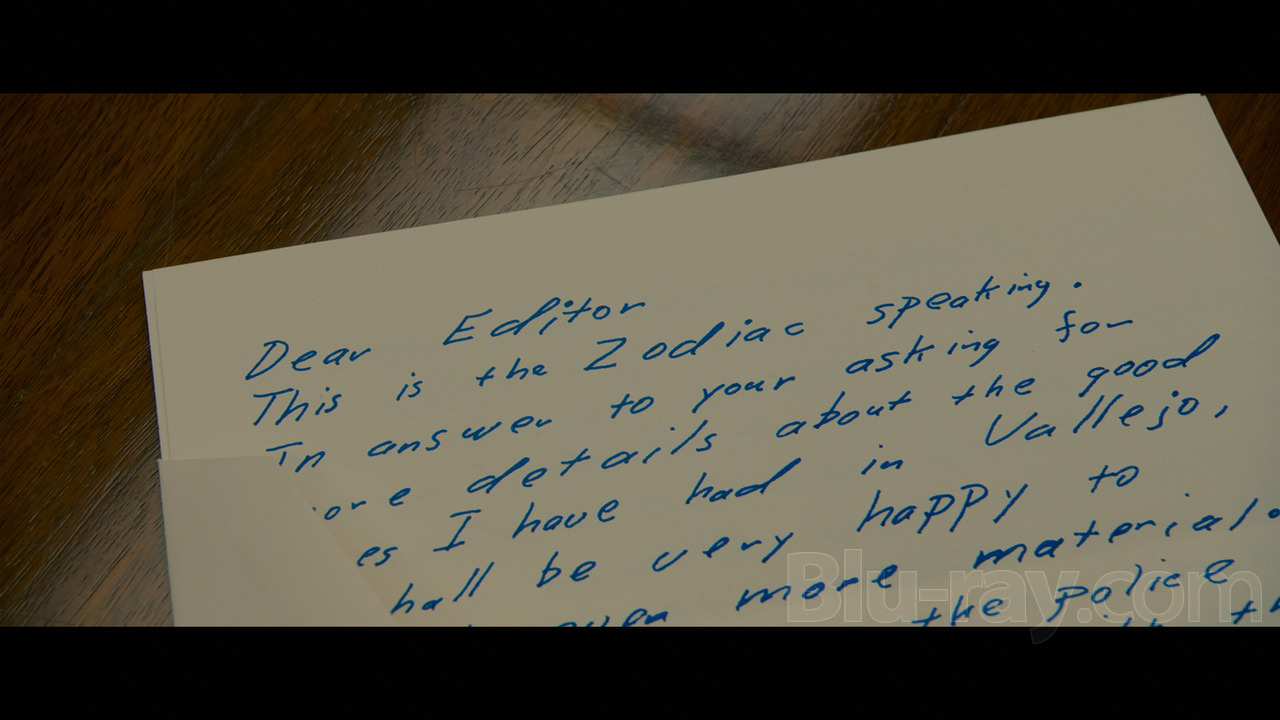 Dear Editor
This is the Zodiac speaking.
In answer to your asking for
ore details about the good
es I have had in Vallejo,
hall be very happy to
even more material.
the police
Blu-ray.com